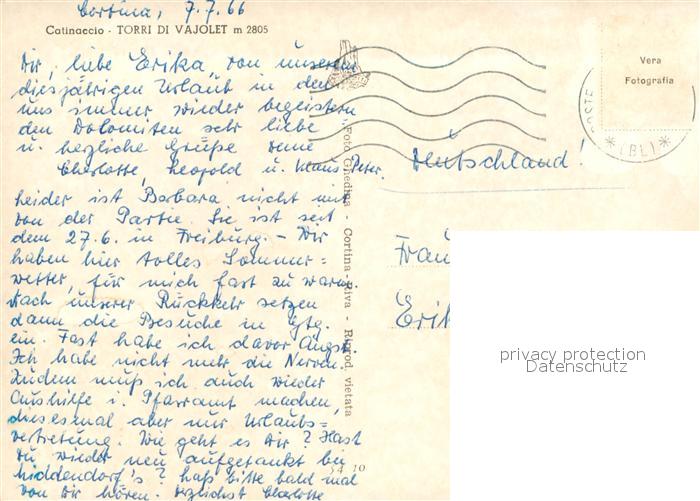 Cortina, 7.7.66
Catinaccio - TORRI DI VAJOLET m 2805
Dir, liebe Erika, von unserem
diesjährigen Urlaub in den
uns immer wieder begeisternden
Dolomiten sehr liebe
u. herzliche Grüße Deine
Charlotte, Leopold u. Klaus Peter.
Leider ist Barbara nicht mit
von der Partie. Sie ist seit
dem 27.6. in Freiburg. - Wir
haben hier tolles Sommer=
wetter, für mich fast zu warm
Nach unserer Rückkehr setzen
dann die Besuche in Gtg.
ein. Fast habe ich davor Angst.
Ich habe nicht mehr die Nerven.
Zudem muß ich auch wieder
Aushilfe i. Pfarramt machen,
diesesmal aber nur Urlaubs=
vertretung. Wie geht es Dir? Hast
Du wieder neu aufgetankt bei
Middendorf's? Laß bitte bald mal
von Dir hören. Herzlichst Charlotte
Foto Ghedina - Cortina - Riva - Riprod. vietata
54 10
Vera
Fotografia
POSTE
(BL)
Deutschland!
Frau
Erik
privacy protection
Datenschutz